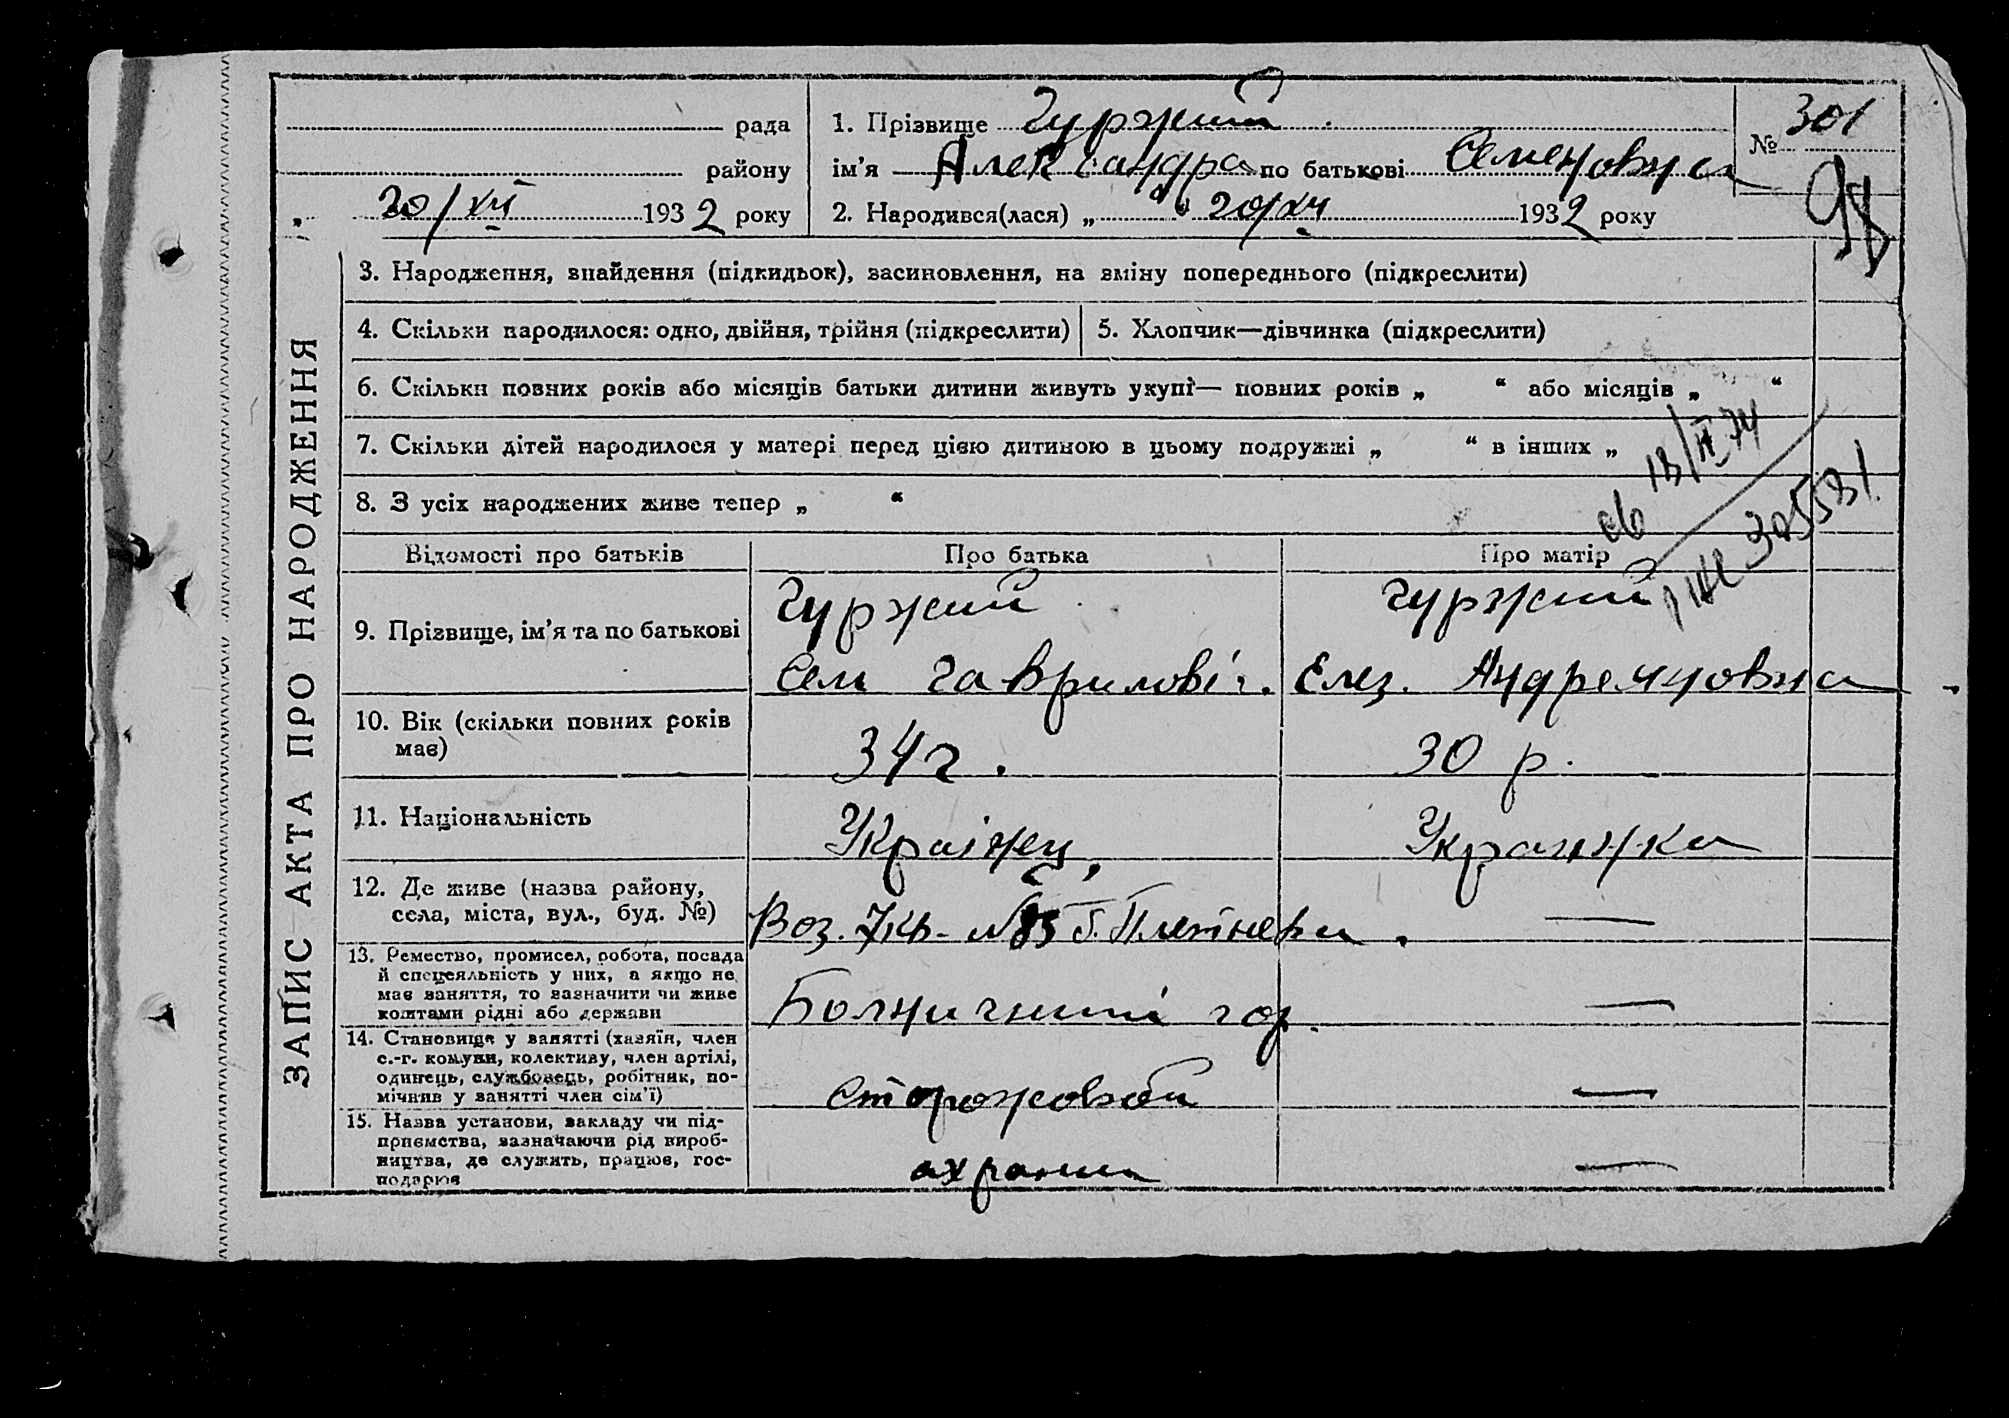 ЗАПИС АКТА ПРО НАРОДЖЕННЯ
рада
району
„ 20/XII 1932 року
1. Прізвище Гуржий
ім’я Александра по батькові Семеновна
2. Народився(лася) „ “ 20/XII 1932 року
№ 301
98
3. Народження, знайдення (підкидьок), засиновлення, на зміну попереднього (підкреслити)
4. Скільки народилося: одно, двійня, трійня (підкреслити)
5. Хлопчик—дівчинка (підкреслити)
6. Скільки повних років або місяців батьки дитини живуть укупі— повних років „ “ або місяців „ “
7. Скільки дітей народилося у матері перед цією дитиною в цьому подружжі „ “ в інших „
8. З усіх народжених живе тепер „ “
305531
Відомості про батьків
Про батька
Про матір
9. Прізвище, ім’я та по батькові
Гуржий
Сем Гавриловіч.
Гуржий
Елез. Андреяновна
10. Вік (скільки повних років
має)
34 г.
30 р.
11. Національність
Украінец,
Украинка
12. Де живе (назва району,
села, міста, вул., буд. №)
Воз. 7кв. №85 б. Плетнева.
—
13. Ремество, промисел, робота, посада
й спеціяльність у них, а якщо не
має заняття, то зазначити чи живе
коштами рідні або держави
Болничний гор.
—
14. Становище у занятті (хазяїн, член
с.-г. комуни, колективу, член артілі,
одинець, службовець, робітник, по-
мічник у занятті член сім’ї)
Сторожовой
—
15. Назва установи, закладу чи під-
приємства, зазначаючи рід вироб-
ництва, де служить, працює, гос-
подарює
охрани
—